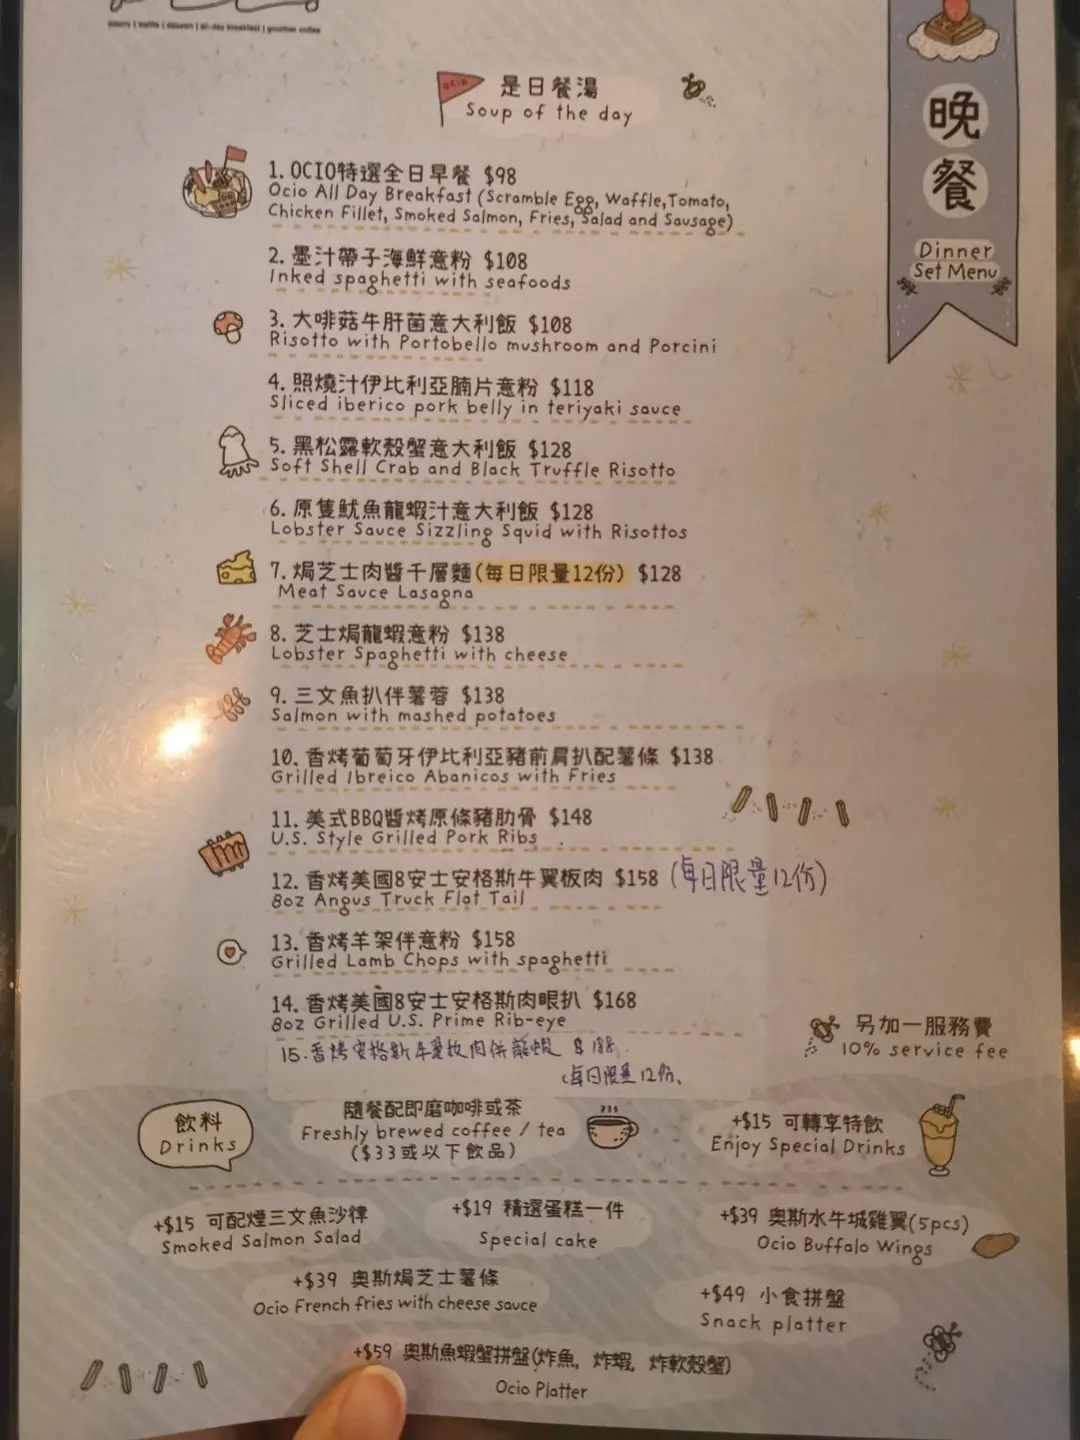 waffle | dessert | all day breakfast | gourmet coffee
是日餐湯
Soup of the day
晚餐
Dinner
Set Menu
1. OCIO特選全日早餐 $98
Ocio All Day Breakfast (Scramble Egg, Waffle,Tomato,
Chicken Fillet, Smoked Salmon, Fries, Salad and Sausage)
2. 墨汁帶子海鮮意粉 $108
Inked spaghetti with seafoods
3. 大啡菇牛肝菌意大利飯 $108
Risotto with Portobello mushroom and Porcini
4. 照燒汁伊比利亞腩片意粉 $118
Sliced iberico pork belly in teriyaki sauce
5. 黑松露軟殼蟹意大利飯 $128
Soft Shell Crab and Black Truffle Risotto
6. 原隻魷魚龍蝦汁意大利飯 $128
Lobster Sauce Sizzling Squid with Risottos
7. 焗芝士肉醬千層麵(每日限量12份) $128
Meat Sauce Lasagna
8. 芝士焗龍蝦意粉 $138
Lobster Spaghetti with cheese
9. 三文魚扒伴薯蓉 $138
Salmon with mashed potatoes
10. 香烤葡萄牙伊比利亞豬前肩扒配薯條 $138
Grilled Ibreico Abanicos with Fries
11. 美式BBQ醬烤原條豬肋骨 $148
U.S. Style Grilled Pork Ribs
12. 香烤美國8安士安格斯牛翼板肉 $158 (每日限量12份)
8oz Angus Truck Flat Tail
13. 香烤羊架伴意粉 $158
Grilled Lamb Chops with spaghetti
14. 香烤美國8安士安格斯肉眼扒 $168
8oz Grilled U.S. Prime Rib-eye
15. 香烤安格斯牛翼板肉併龍蝦 $188
(每日限量12份)
另加一服務費
10% service fee
飲料
Drinks
隨餐配即磨咖啡或茶
Freshly brewed coffee / tea
($33或以下飲品)
+$15 可轉享特飲
Enjoy Special Drinks
+$15 可配煙三文魚沙律
Smoked Salmon Salad
+$19 精選蛋糕一件
Special cake
+$39 奧斯水牛城雞翼(5pcs)
Ocio Buffalo Wings
+$39 奧斯焗芝士薯條
Ocio French fries with cheese sauce
+$49 小食拼盤
Snack platter
+$59 奧斯魚蝦蟹拼盤(炸魚, 炸蝦, 炸軟殼蟹)
Ocio Platter